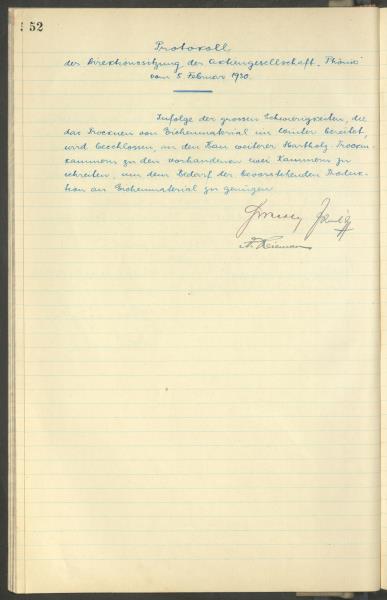 52
Protokoll
der Direktionssitzung der Aktiengesellschaft „Phönix"
vom 5. Februar 1930.
Infolge der grossen Schwierigkeiten, die
das Trocknen von Eichenmaterial im Winter bereitet,
wird beschlossen, an den Bau weiterer Hartholz-Trocken-
kammern zu den vorhandenen zwei Kammern zu
schreiten, um dem Bedarf der bevorstehenden Produk-
tion an Eichenmaterial zu genügen.